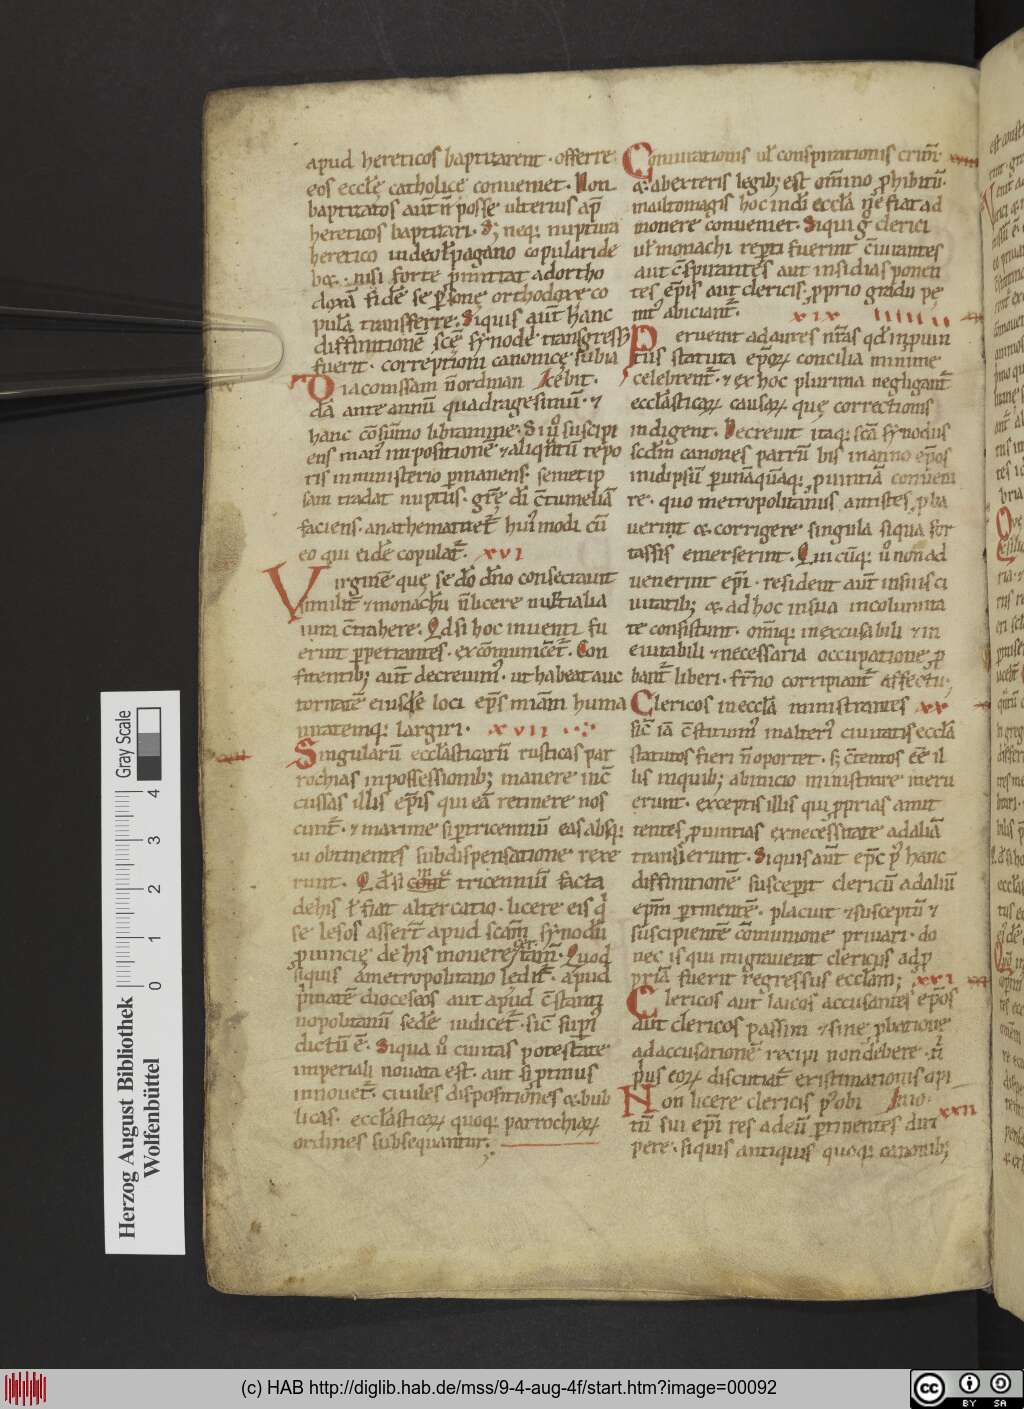 apud hereticos baptizarent · offerre
eos ecclę catholicę conueniet · Non
baptizatos aut̄ n̄ posse ulterius ap̄
hereticos baptizari · s; neq; nuptura
heretico iudeo ł pagano copulari de
bet · nisi forte p̄mittat ad ortho
doxā fidē se ꝑsonę orthodoxe co
pulā transferre · Siquis aut̄ hanc
diffinitionē scē synodi transgressꝰ
fuerit · correptioni canonicę subia
Diaconissam n̄ ordinan cebit ·
dā ante annū quadragesimū · ⁊
hanc cū sūmo libramine · Si ū suscipi
ens manꝰ impositionē ⁊ aliqn̄tū tēpo
ris in ministerio ꝑmanens · semetip
sam tradat nuptiis · gr̄ę dī c̄tumeliā
faciens · anathematizet̄ huiꝰmodi cū
eo qui eidē copulat̄ · xvi
Virginē quę se dō dn̄o consecrauit
similit̄ ⁊ monachū n̄ licere nuptialia
iura c̄trahere · Qd si hoc inuenti fu
erint ꝑpetrantes · excōmunicent̄ · Con
fitentib; aut̄ decreuimꝰ · ut habeat auc
toritatē eiusdē loci ep̄s mīam huma
nitatemq; largiri · xvii
Singularū ecclasticarū rusticas par
rochias in possessionib; manere inc̄
cussas illis ep̄is qui eas retinere nos
cunt̄ · ⁊ maxime si ꝑ tricenniū eas absq;
ui obtinentes sub dispensatione rexe
runt · Qd si tricenniū facta
de his ł fiat altercatio · licere eis q̄
se lesos asserūt apud scam synodū
ꝓuincię de his mouere certam̄ · Quod
siquis a metropolitano ledit̄ · apud
p̄matē dioceseos aut apud c̄stanti
nopolitanū sedē iudicet̄ · sic̄ supꝰ
dictū ē · Siqua ū ciuitas potestate
imperiali nouata est · aut si ꝓtinus
innouet̄ · ciuiles dispositiones et pub
licas · ecclasticarꝝ quoq; parrochiarꝝ
ordines subsequantur;
Coniurationis uł conspirationis crim̄ xviii
et ab exteris legib; est om̄ino ꝓhibitū ·
maxīo magis hoc in dī ecclā ne fiat ad
monere conueniet · Siqui g̊ clerici
uł monachi rep̄ti fuerint c̄iurantes
aut c̄spirantes aut insidias ponen
tes ep̄is aut clericis · ꝓprio gradu pe
nitꝰ abiciant̄ · xix
Peruenit ad aures nr̄as qd in ꝓuin
tiis statuta ep̄orꝝ concilia minime
celebrent̄ · ⁊ ex hoc plurima negligant̄
ecclasticarꝝ causarꝝ quę correctionis
indigent · Decreuit itaq; scā synodus
scdm canones patrū bis in anno ep̄os
in id ipsū ꝑ unāquāq; ꝓuintiā conueni
re · quo metropolitanus antistes ꝓba
uerint et corrigere singula siqua for
tassis emerserint · Qui cūq; ū non ad
uenerint ep̄i · resident aut̄ in suis ci
uitatib; et ad hoc in sua incolumita
te consistunt · om̄iq; inexcusabili ⁊ in
euitabili ⁊ necessaria occupatione ꝓ
bant̄ liberi · fr̄no corripiant̄ affectu;
Clericos in ecclā ministrantes xx
sic̄ iā c̄stituimꝰ in alteriꝰ ciuitatis ecclā
statutos fieri n̄ oportet · s; c̄tentos eē il
lis in quib; ab initio ministrare meru
erunt · exceptis illis qui ꝓprias amit
tentes ꝓuintias ex necessitate ad aliā
transierunt · Siquis aut̄ ep̄c pꝰ hanc
diffinitionē susceperit clericū ad aliū
ep̄m ꝑtinentē · placuit ⁊ susceptū ⁊
suscipientē cōmunione priuari · do
nec is qui migrauerat clericus ad ꝓ
priā fuerit regressus ecclam; xxi
Clericos aut laicos accusantes ep̄os
aut clericos passim ⁊ sine ꝓbatione
ad accusationē recipi non debere · n̄
priꝰ eorꝝ discutiat̄ existimationis opi
Non licere clericis pꝰ obi nio ·
tū sui ep̄i res ad eū ꝑtinentes diri xxii
pere · siquis antiquis quoq; canonib;
Gray Scale
4 3 2 1 0
Herzog August Bibliothek
Wolfenbüttel
(c) HAB http://diglib.hab.de/mss/9-4-aug-4f/start.htm?image=00092
cc BY SA